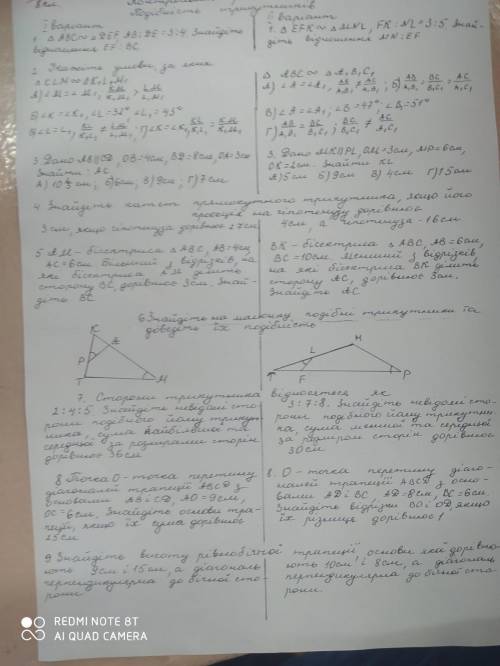 8 клас
Подібність трикутників
I варіант
1. △ABC ∾ △DEF, AB:DE = 3:4. Знайдіть
відношення EF : BC.
2. Укажіть умови, за яких
△KLM ∾ △K₁L₁M₁
3. Дано AB∥CD, OB=4см, BD=8см, OA=3см
Знайти: AC.
А) 10 см; Б) 6см; В) 9см; Г) 7см
4 Знайдіть катет прямокутного трикутника, якщо його
проєкція на гіпотенузу дорівнює
3см, якщо гіпотенуза дорівнює 27см
5 AM - бісектриса △ABC, AB=4см,
AC=6см. Більший з відрізків, на
які бісектриса AM ділить
сторону BC, дорівнює 3см. Знай-
діть BC
6 Знайдіть на малюнку подібні трикутники та
доведіть їх подібність
K
P
T
M
7. Сторони трикутника
2:4:5. Знайдіть невідомі сто-
рони подібного йому трикут-
ника, сума найбільшої та
середньої за розмірами сторін
дорівнює 36см
8 Точка O - точка перетину
діагоналей трапеції ABCD з
основами AB і CD, AO=9см,
OC=6см. Знайдіть основи тра-
пеції, якщо їх сума дорівнює
25см
9 Знайдіть висоту рівнобічної трапеції, основи якої дорівню-
ють 9см і 15см, а діагональ
перпендикулярна до бічної сто-
рони
II варіант
1. △EFK ∾ △MNL, FK : NL = 3:5. Знай-
діть відношення MN : EF
△ABC ∾ △A₁B₁C₁
В) ∠A=∠A₁, ∠B=47° ∠B₁=51°
3. Дано MK∥PL, OM=3см, MP=6см,
OK=2см. Знайти KL
А) 5см Б) 9см В) 4см Г) 15см
4см, а гіпотенуза - 16см
BK - бісектриса △ABC, AB=6см,
BC=10см. Менший з відрізків,
на які бісектриса BK ділить
сторону AC, дорівнює 3см.
Знайдіть AC
H
L
T
F
P
відносяться як
3:7:8. Знайдіть невідомі сто-
рони подібного йому трикутни-
ка, сума меншої та середньої
за розміром сторін дорівнює
30см
8. O - точка перетину діаго-
налей трапеції ABCD з осно-
вами AD і BC, AD=8см, BC=6см.
Знайдіть відрізки BO і OD, якщо
їх різниця дорівнює 1
ють 10см і 8см, а діагональ
перпендикулярна до бічної сто-
рони
REDMI NOTE 8T
AI QUAD CAMERA